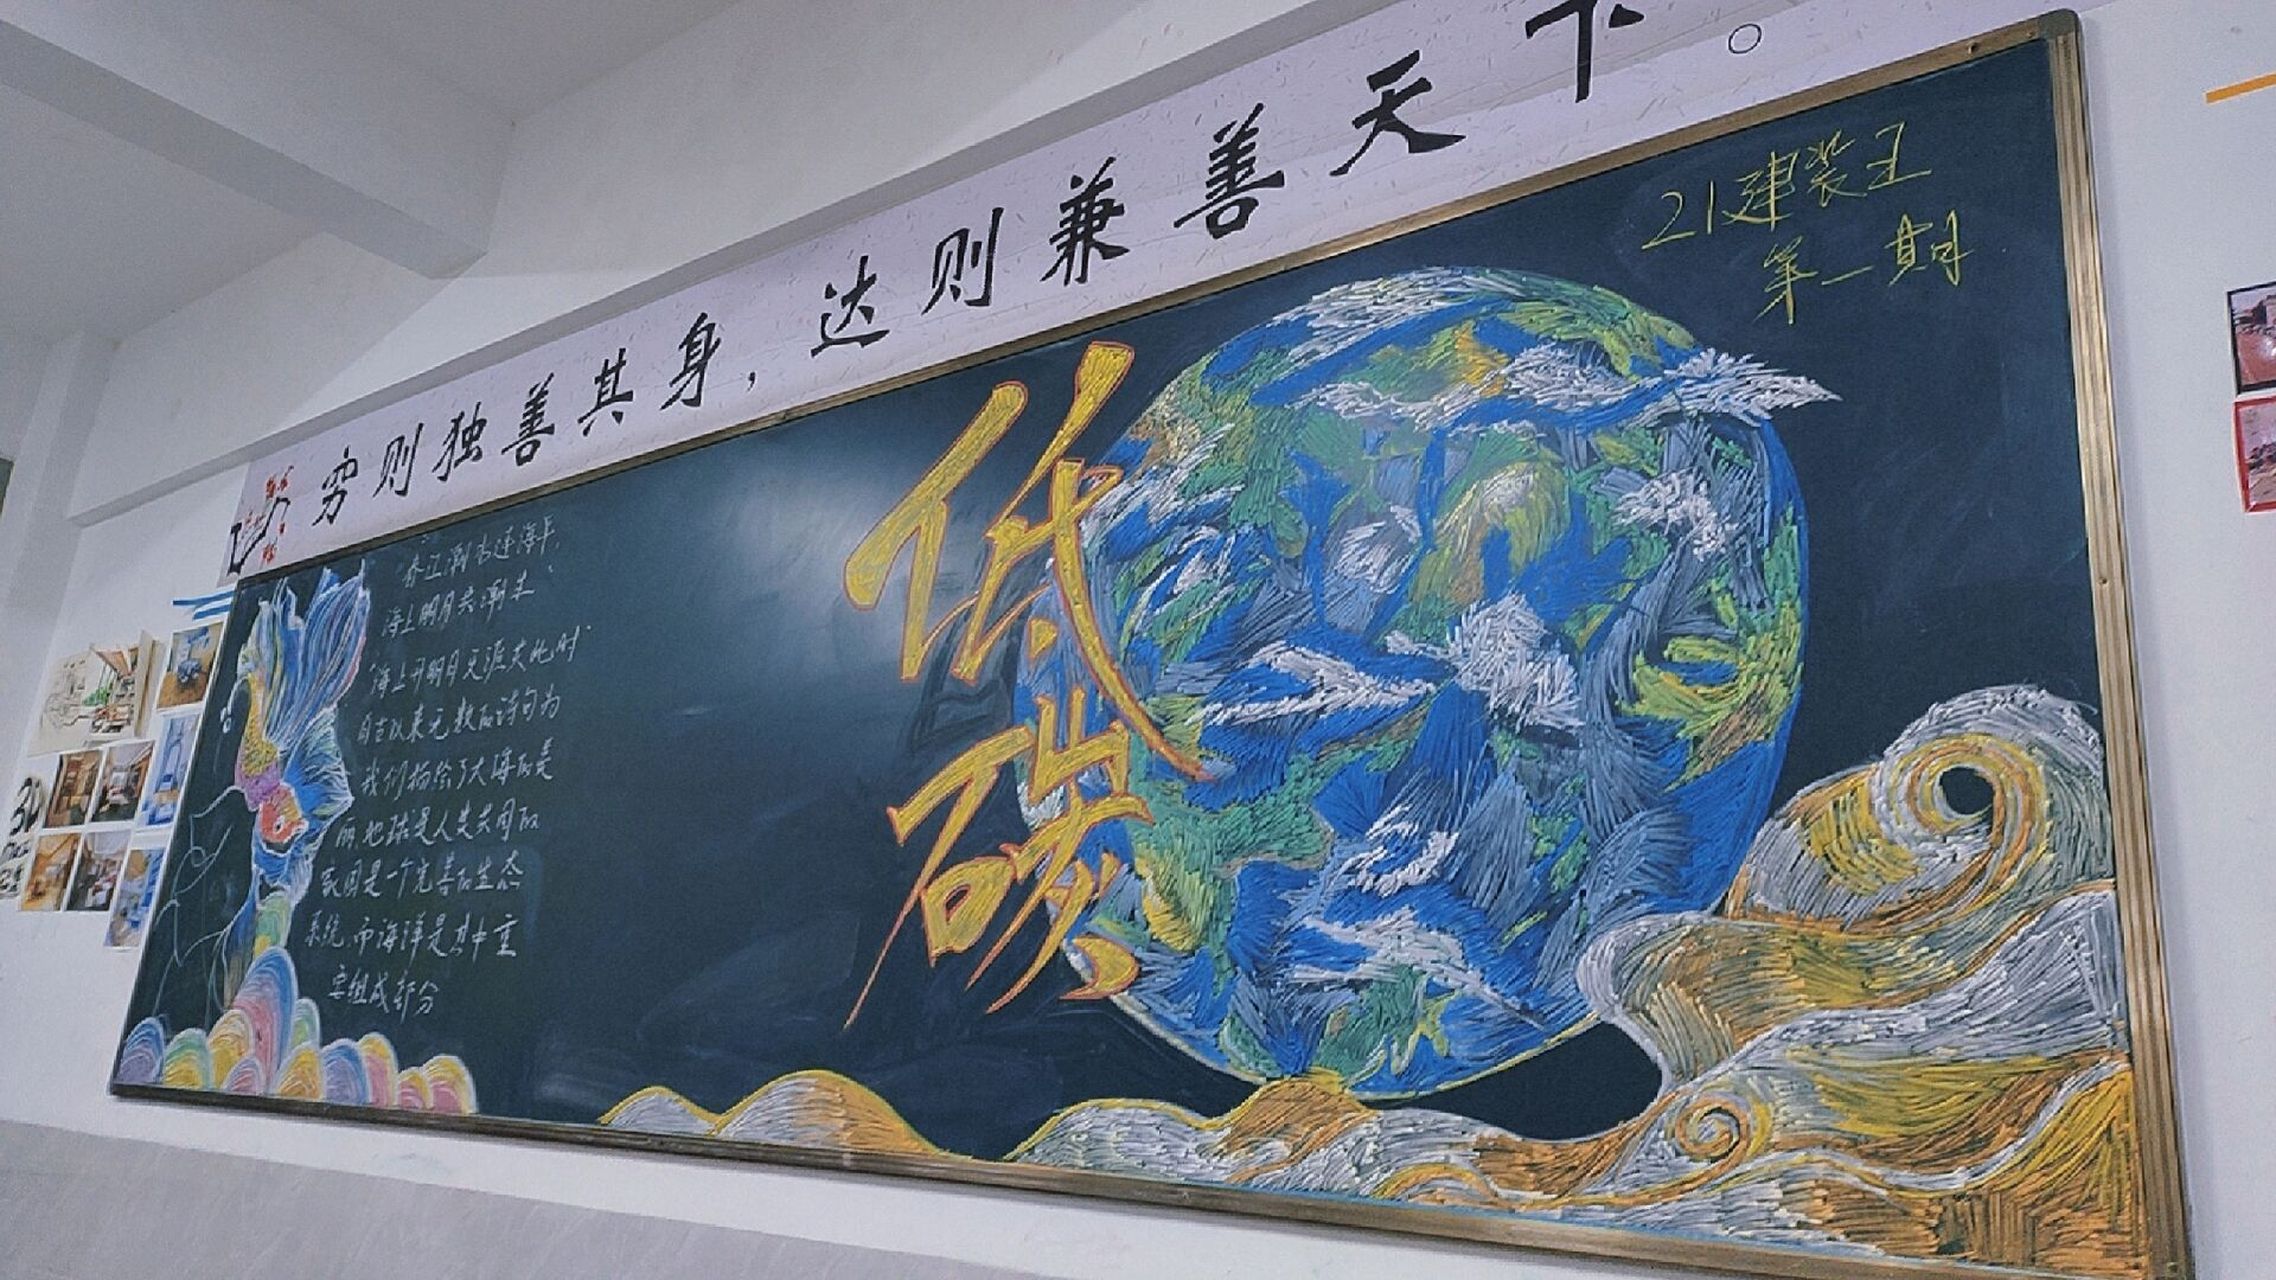 穷则独善其身，达则兼善天下。
21建装王
第一期
低
碳
"春江潮水连海平,
海上明月共潮生"
"海上升明月天涯共此时"
自古以来无数的诗句为
我们描绘了大海的美
丽,地球是人类共同的
家园是一个完善的生态
系统,而海洋是其中重
要组成部分